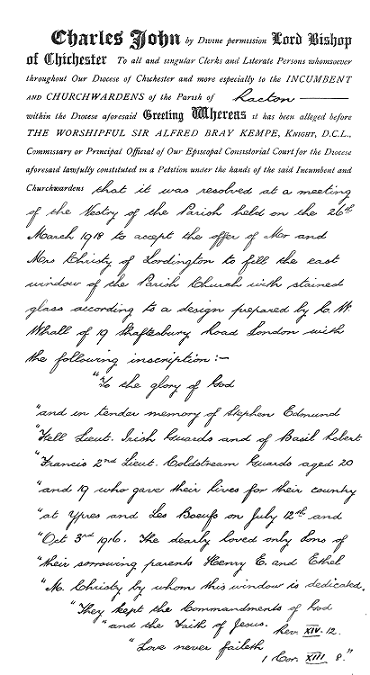 Charles John by Divine permission Lord Bishop
of Chichester To all and singular Clerks and Literate Persons whomsoever
throughout Our Diocese of Chichester and more especially to the INCUMBENT
AND CHURCHWARDENS of the Parish of Racton
within the Diocese aforesaid Greeting Whereas it has been alleged before
THE WORSHIPFUL SIR ALFRED BRAY KEMPE, KNIGHT, D.C.L.,
Commissary or Principal Official of Our Episcopal Consistorial Court for the Diocese
aforesaid lawfully constituted in a Petition under the hands of the said Incumbent and
Churchwardens that it was resolved at a meeting
of the Vestry of the Parish held on the 26th
March 1918 to accept the offer of Mr and
Mrs Christy of Lordington to fill the east
window of the Parish Church with stained
glass according to a design prepared by C. W.
Whall of 19 Shaftesbury Road London with
the following inscription:-
"To the glory of God
"and in tender memory of Stephen Edmund
"Fell Lieut. Irish Guards and of Basil Robert
"Francis 2nd Lieut. Coldstream Guards aged 20
"and 19 who gave their lives for their country
"at Ypres and Les Boeufs on July 12th and
"Oct 3rd 1916. The dearly loved only sons of
"their sorrowing parents Henry E. and Ethel
"M. Christy by whom this window is dedicated.
"They kept the Commandments of God
"and the Faith of Jesus. Rev XIV. 12.
"Love never faileth
1 Cor. XIII. 8."